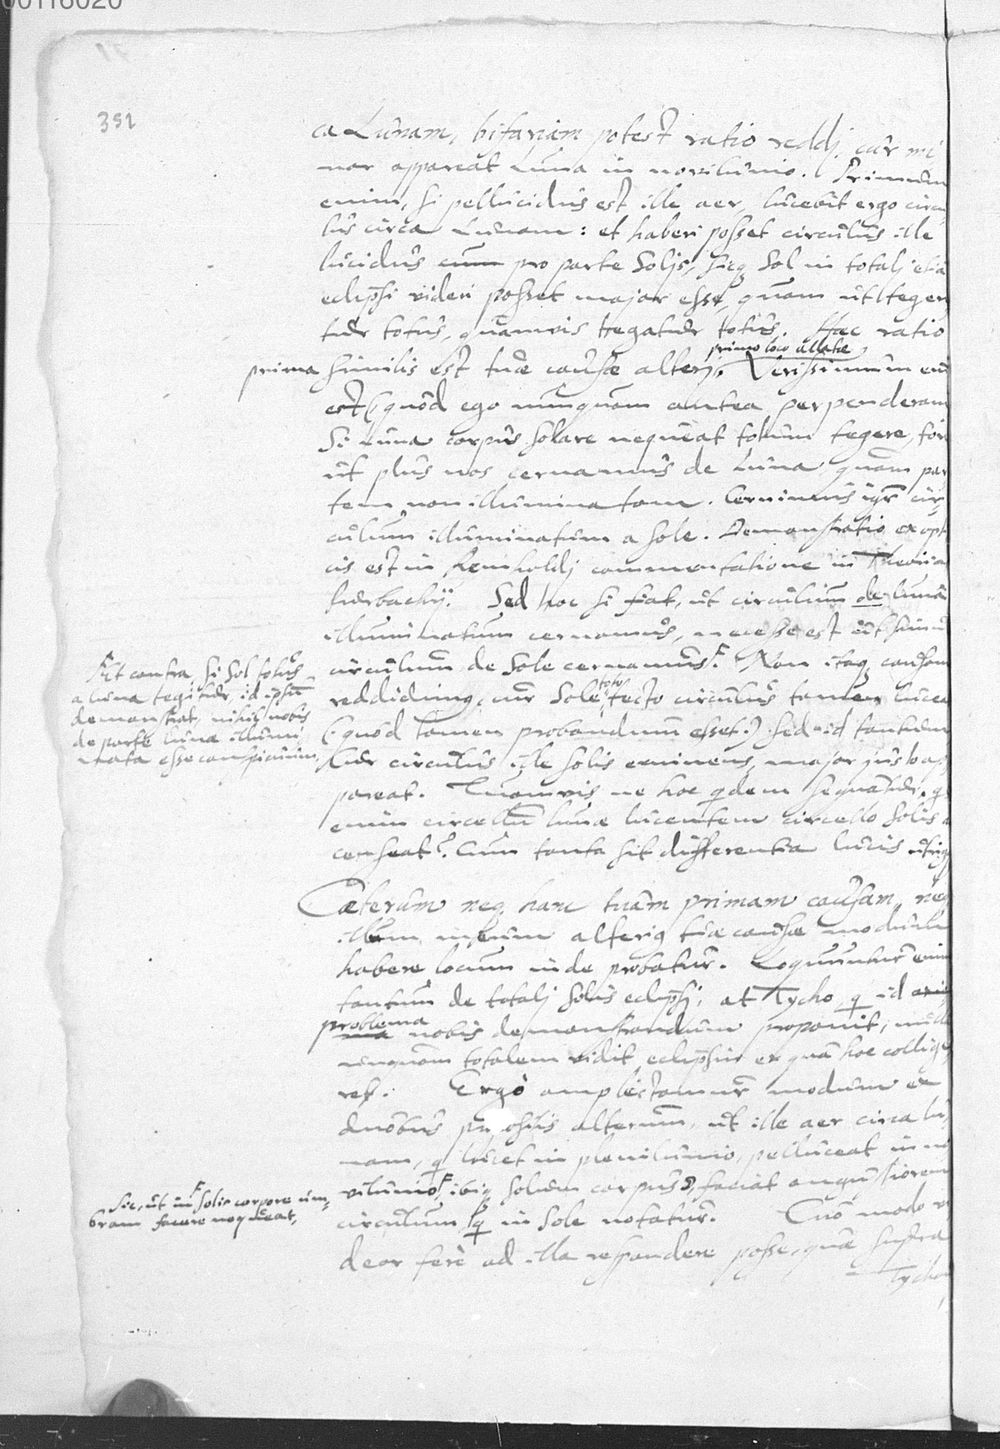 00116020
351
ca Lunam, bifariam potest ratio reddj, cur mi
nor appareat Luna in novilunio. Primum
enim, si pellucidus est ille aer, lucebit ergo circu
lus circa Lunam: et haberi posset circulus ille
lucidus cum pro parte Solis, sicq Sol in totalj etiā
eclipsi videri posset major esse, quam ut teger
tur totus, quamvis tegatur totus. Haec ratio
primo loco allatae
prima similis est tuae causae alterj. Verissimum enī
est (quod ego nunquam antea perpenderam
Si Luna corpus solare nequeat totum tegere, for
ut plus nos cernamus de Luna, quam par
tem non illuminatam. Cernimus igr cir
culum illuminatum a sole. Demonstratio ex opt
cis est in Reinholdj commentatione in Theoria
Purbachij. Sed hoc si fiat, ut circulum de luna
illuminatum cernamus, necesse est ut simul
circulum de Sole cernamus. Non itaq causam
reddidimus, cur Sole toto tecto circulus tamen lucea
(quod tamen probandum esset) sed id tantum
Cur circulus ille solis eminens, major justo ap
pareat. Quamvis ne hoc quidem sequatur. q
enim circellum lunae lucentem circello solis a
censeat? Cum tanta sit differentia lucis utriq
At contra, si Sol totus
a luna tegitur, id ipsum
demonstrat, nihil nobis
de parte lunae illumi
nata esse conspicuum.
Caeterum neq hanc tuam primam causam, neq
illum meum alteriq tuae causae modulum
habere locum inde probatur. Loquuntur enim
tantum de totalj solis eclipsj, at Tycho, q id
problema
nobis demonstrandum proponit, nullam
unquam totalem vidit eclipsin ex qua hoc collige
ret. Ergò amplectamur modum ex
duobus alterum, ut ille aer circa lu
nam, q lucet in plenilunio, pelluceat in no
vilunio, ibiq solum corpus faciat angustiorem
circulum q in Sole notatur. Quo modo vi
deor ferè ad illa respondere posse, quae supra
Tycho
Sic, ut in solis corpore um,
bram facere nequeat,